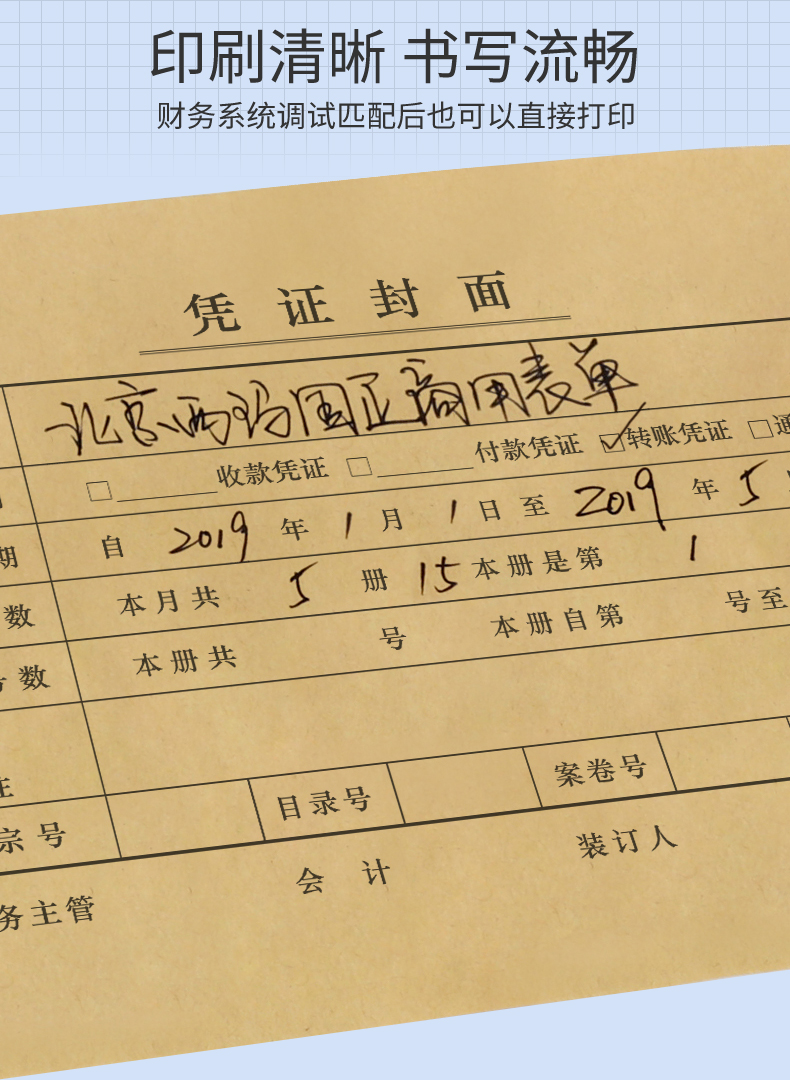 印刷清晰 书写流畅
财务系统调试匹配后也可以直接打印
凭证封面
北京西玛国正商用表单
□ 收款凭证 □ 付款凭证 ☑ 转账凭证 □ 通
期 自 2019 年 1 月 1 日 至 2019 年 5
数 本月共 5 册 15 本册是第 1
号数 本册共 号 本册自第 号至
宗号 目录号 案卷号
务主管 会计 装订人